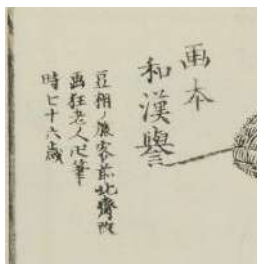 画本
和漢譽
豆相ノ旅客前北齋改
画狂老人卍筆
時七十六歳